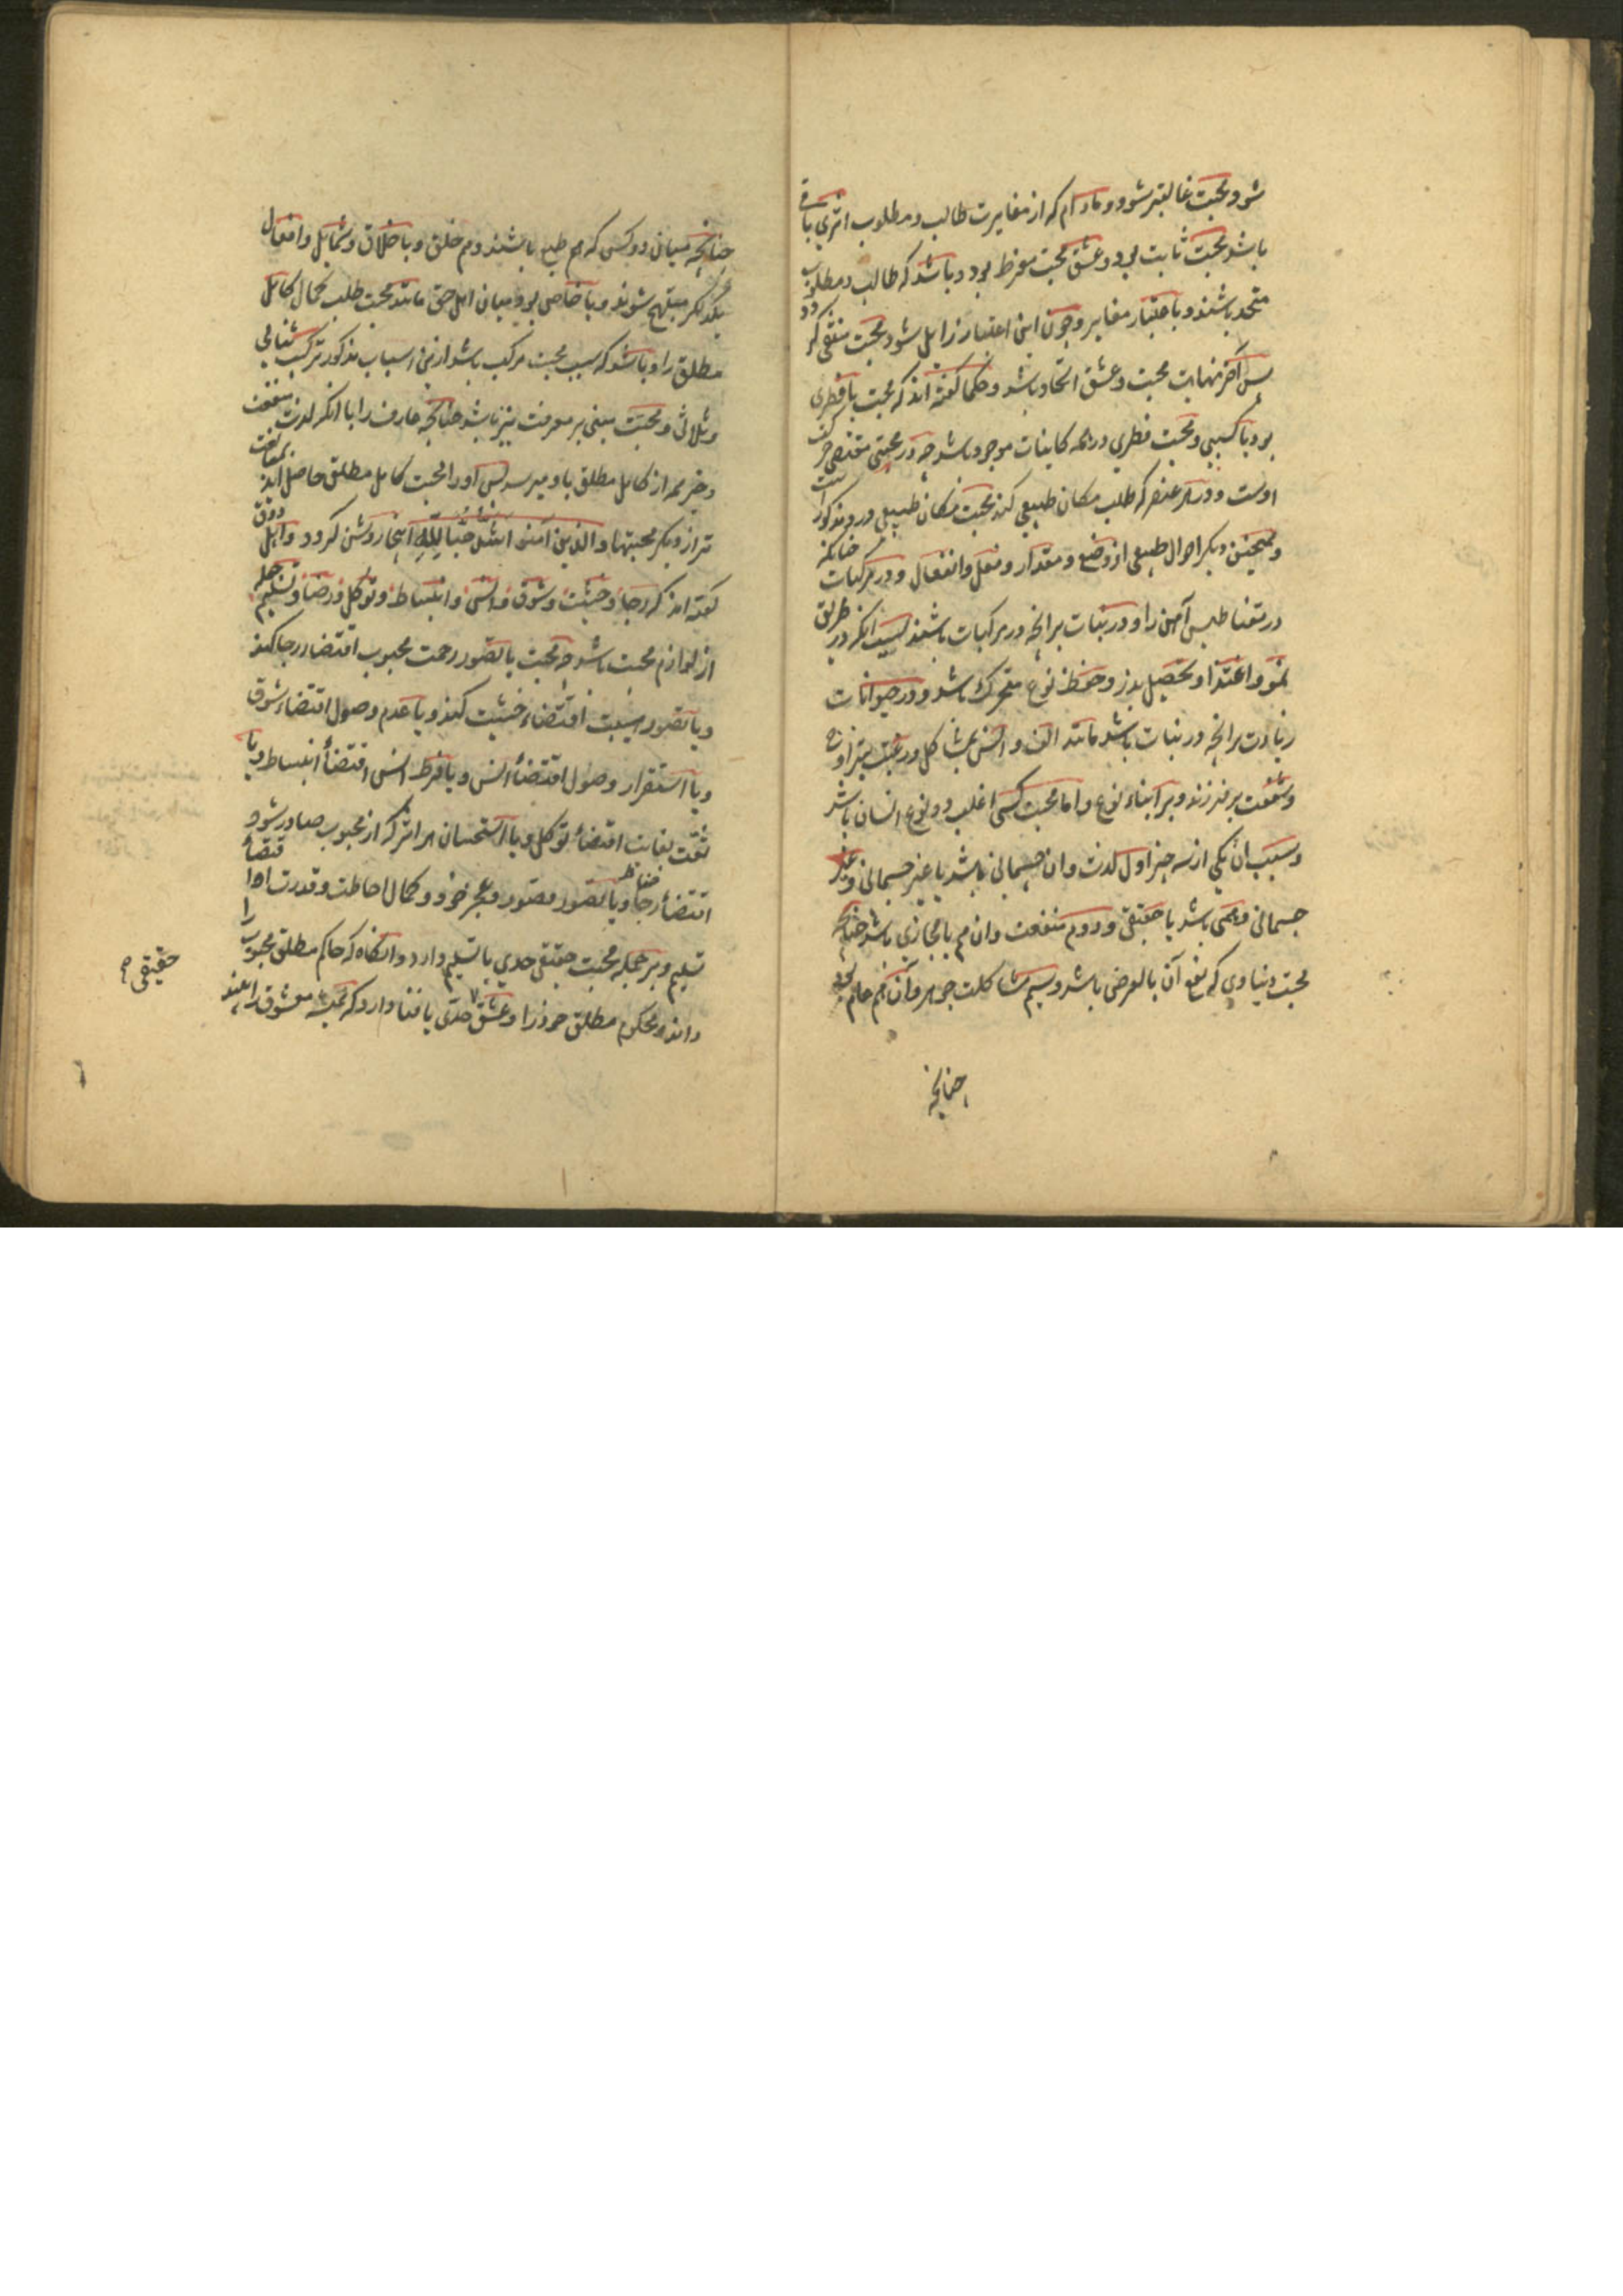 شود محبت غالبتر شود و مادام که از مغایرت طالب و مطلوب اثری باقی
باشد محبت ثابت بود و عشق محبت مفرط بود و باشد که طالب و مطلوب
متحد باشند و باعتبار مغایر و چون این اعتبار زایل شود محبت منتفی گردد
پس آخر نهایت محبت و عشق اتحاد باشد و حکما گفته اند که محبت یا فطری
بود یا کسبی و محبت فطری در همه کاینات موجود باشد چه در محبتی مقتضی حرکت
اوست و در هر عنصر که طلب مکان طبیعی کند محبت مکان طبیعی درو مذکور است
و همچنین دیکر احوال طبیعی از وضع و مقدار و فعل و انفعال و در مرکبات چنانکه
در مقناطیس آهن را و در نبات بر انچه در مرکبات باشند بسبب انکه در طریق
نمو و اغتذا و تحصیل بذر و حفظ نوع متحرک باشد و در حیوانات
زیادت بر انچه در نبات باشد مانند الف و انس بمشاکل و رغبت بتزاوج
و شفقت بر فرزند و بر ابناء نوع و اما محبت کسبی اغلب در نوع انسان باشد
و سبب ان یکی از سه چیز اول لذت و ان جسمانی باشد یا غیر جسمانی و غیر
جسمانی وهمی باشد یا حقیقی و دوم منفعت و ان هم یا مجازی باشد چنانچه
محبت دنیاوی که نفع آن بالعرض باشد و سیم مشاکلت جوهر و آن هم عام بود
چنانچه
چنانچه میان دو کس که هم طبع باشند و هم خلق و باخلاق و شمایل و افعال
یکدیکر مبتهج شوند و یا خاص بود میان اهل حق مانند محبت طلب کمال کامل
مطلق را و باشد که سبب محبت مرکب باشد ازین اسباب مذکور ترکیب ثنایی
و ثلاثی و محبت مبنی بر معرفت نیز باشد چنانچه عارف را با انکه لذت و منفعت
و خیر همه از کامل مطلق باو میرسد پس او را محبت کامل مطلق حاصل آید بمبالغت
تر از دیکر محبتها والذین امنو اشد حبا لله اینجا روشن کردد و اهل ذوق
کفته اند که رجا و خشیت و شوق و انس و انبساط و توکل و رضا و تسلیم جمله
از لوازم محبت باشد چه محبت با تصور رحمت محبوب اقتضاء رجا کند
و با تصور هیبت اقتضاء خشیت کند و با عدم وصول اقتضاء شوق
و با استقرار وصول اقتضاء انس و با فرط انس اقتضاء انبساط و با
ثقت بعنایت اقتضاء توکل و با استحسان هر اثر که از محبوب صادر شود
اقتضاء رضا و با تصور قصور و عجز خود و کمال احاطت و قدرت او اقتضاء
تسلیم و بر جمله محبت حقیقی حدی با تسلیم دارد و انکاه که حاکم مطلق محبوب را
داند و محکوم مطلق خود را و عشق حدی با فنا دارد که همه معشوق را بیند
حقیقی صح